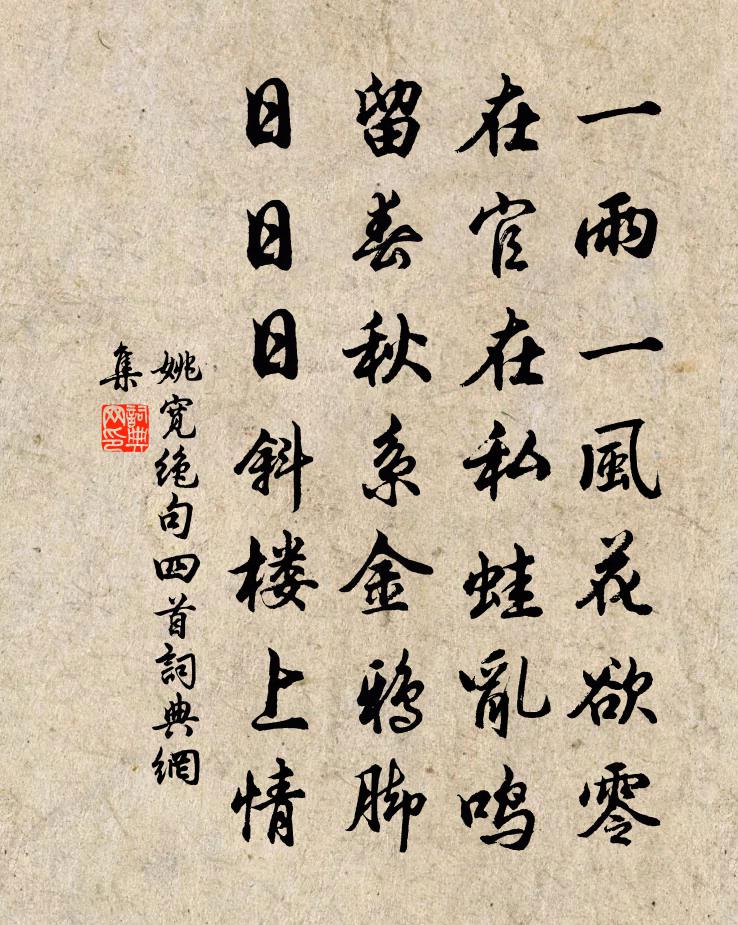 一雨一風花欲零
在官在私蛙亂鳴
留春秋系金鴉脚
日日日斜楼上情
姚寛绝句四首詞典網
集
詞典
网印